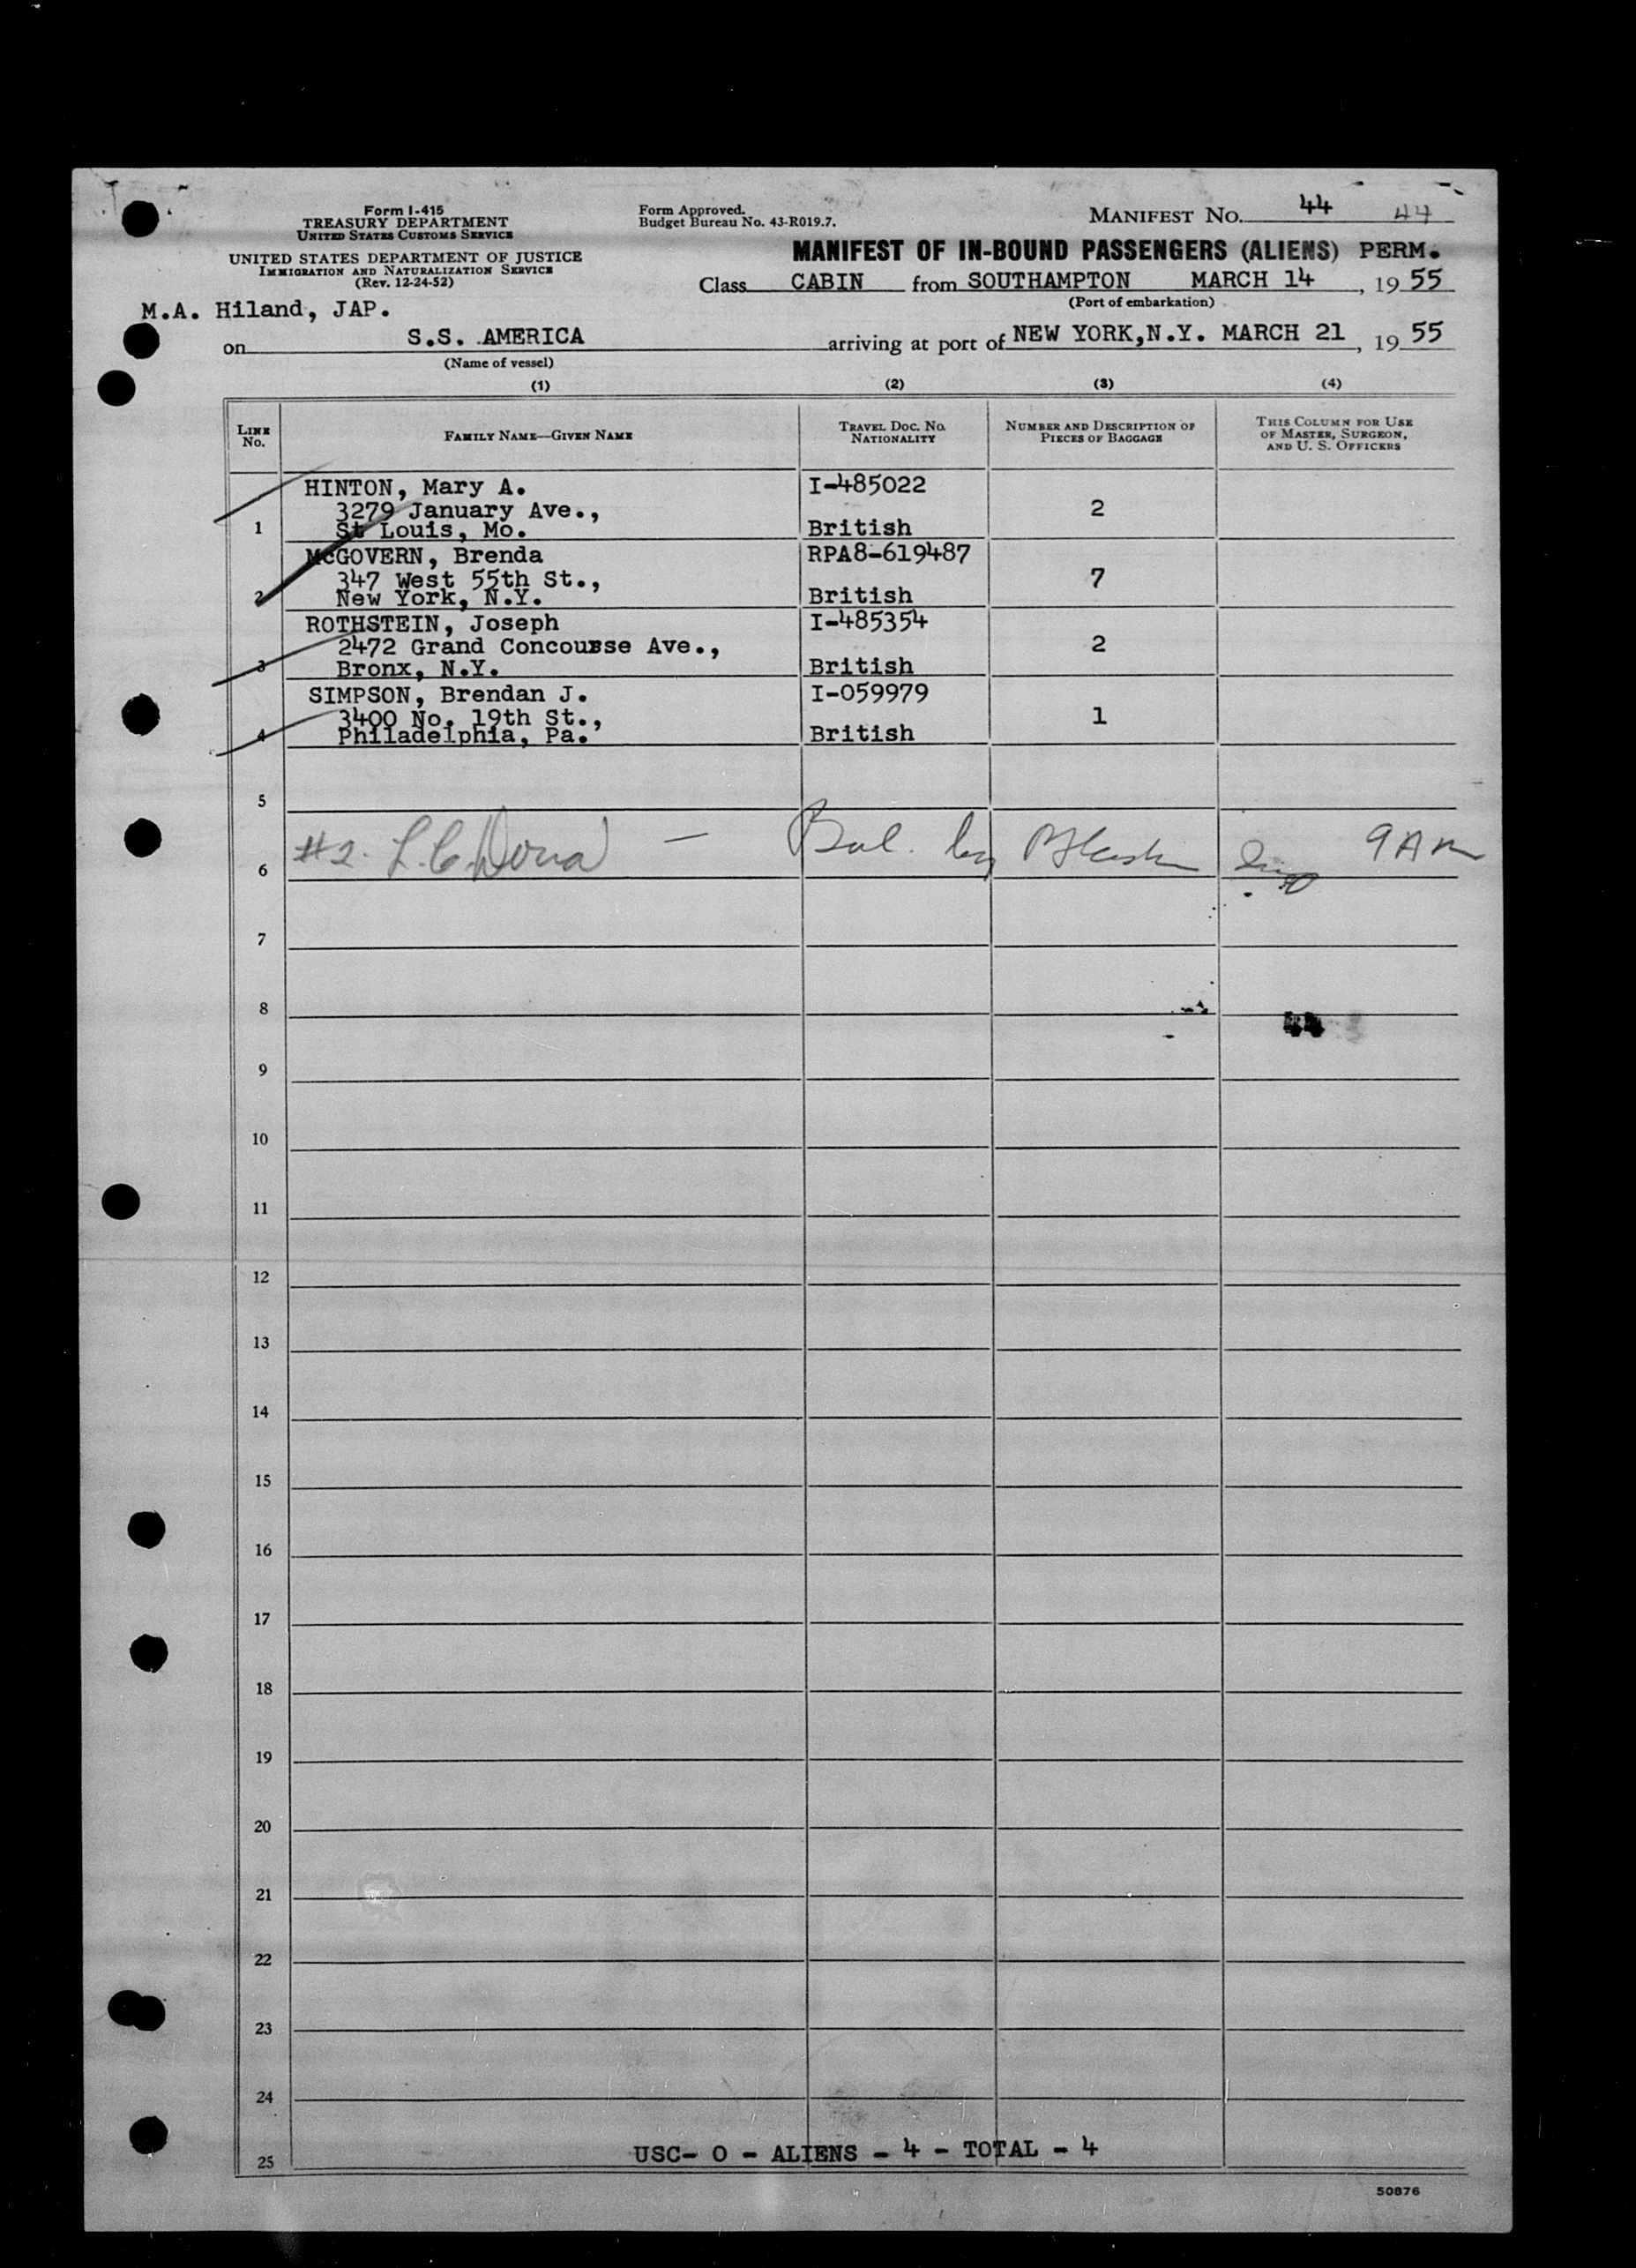 Form I-415
TREASURY DEPARTMENT
UNITED STATES CUSTOMS SERVICE
UNITED STATES DEPARTMENT OF JUSTICE
IMMIGRATION AND NATURALIZATION SERVICE
(Rev. 12-24-52)
Form Approved.
Budget Bureau No. 43-R019.7.
MANIFEST NO. 44 44
MANIFEST OF IN-BOUND PASSENGERS (ALIENS) PERM.
Class CABIN from SOUTHAMPTON MARCH 14, 19 55
(Port of embarkation)
M.A. Hiland, JAP.
on S.S. AMERICA arriving at port of NEW YORK,N.Y. MARCH 21, 19 55
(Name of vessel)
(1) (2) (3) (4)
LINE No. FAMILY NAME—GIVEN NAME TRAVEL DOC. NO. NATIONALITY NUMBER AND DESCRIPTION OF PIECES OF BAGGAGE THIS COLUMN FOR USE OF MASTER, SURGEON, AND U. S. OFFICERS
HINTON, Mary A. I-485022
3279 January Ave., 2
1 St Louis, Mo. British
McGOVERN, Brenda RPA8-619487
347 West 55th St., 7
2 New York, N.Y. British
ROTHSTEIN, Joseph I-485354
2472 Grand Concourse Ave., 2
3 Bronx, N.Y. British
SIMPSON, Brendan J. I-059979
3400 No. 19th St., 1
4 Philadelphia, Pa. British
5
6 #2. Bal. by 9 AM
7
8 44
9
10
11
12
13
14
15
16
17
18
19
20
21
22
23
24
25 USC- 0 - ALIENS - 4 - TOTAL - 4
50876